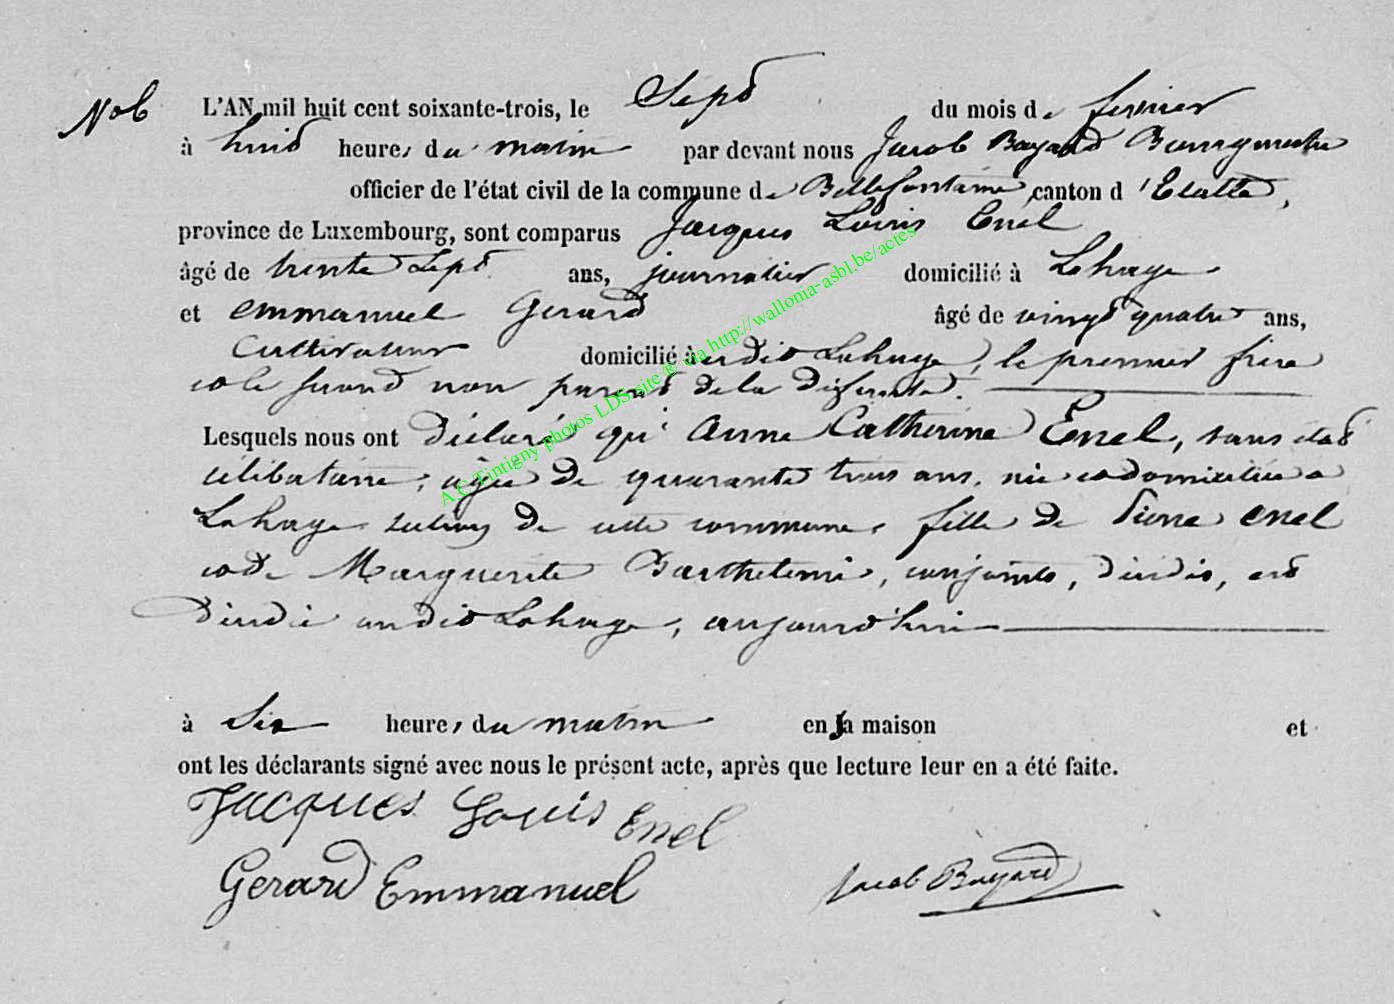 No 6 L'AN mil huit cent soixante-trois, le Sept du mois de fevrier
à huit heures du matin par devant nous Jacob Bayard Bourgmestre
officier de l'état civil de la commune de Bellefontaine canton d'Etalle,
province de Luxembourg, sont comparus Jacques Louis Enel
âgé de trente Sept ans, journalier domicilié à Lahage
et Emmanuel Gerard âgé de vingt quatre ans,
Cultivateur domicilié audit Lahage, le premier frère
et le second non parent de la défunte.
Lesquels nous ont déclaré qu'Anne Catherine Enel, sans état
célibataire, agée de quarante trois ans, née et domiciliée a
Lahage section de cette commune, fille de Pierre Enel
et de Marguerite Barthelemi, conjoints, décédés, est
décédée audit Lahage, aujourd'hui
à Six heures du matin en sa maison et
ont les déclarants signé avec nous le présent acte, après que lecture leur en a été faite.
Jacques Louis Enel
Gerard Emmanuel Jacob Bayard
A.C. Tintigny photos LDS site ® via http://wallonia-asbl.be/actes